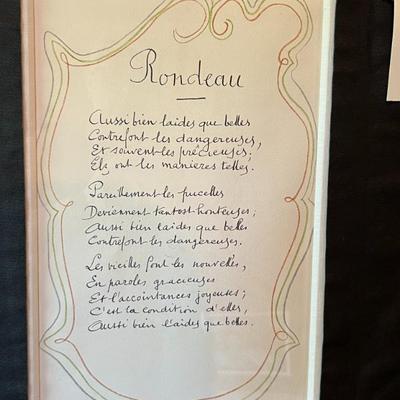 Rondeau
Aussi bien laides que belles
Contrefont les dangereuses,
Et souvent les précieuses;
Els ont les manières telles.
Pareillement les pucelles
Deviennent tantost honteuses;
Aussi bien laides que belles
Contrefont les dangereuses.
Les vieilles font les nouvelles,
En paroles gracieuses
Et l'accointances joyeuses;
C'est la condition d'elles,
Aussi bien laides que belles.